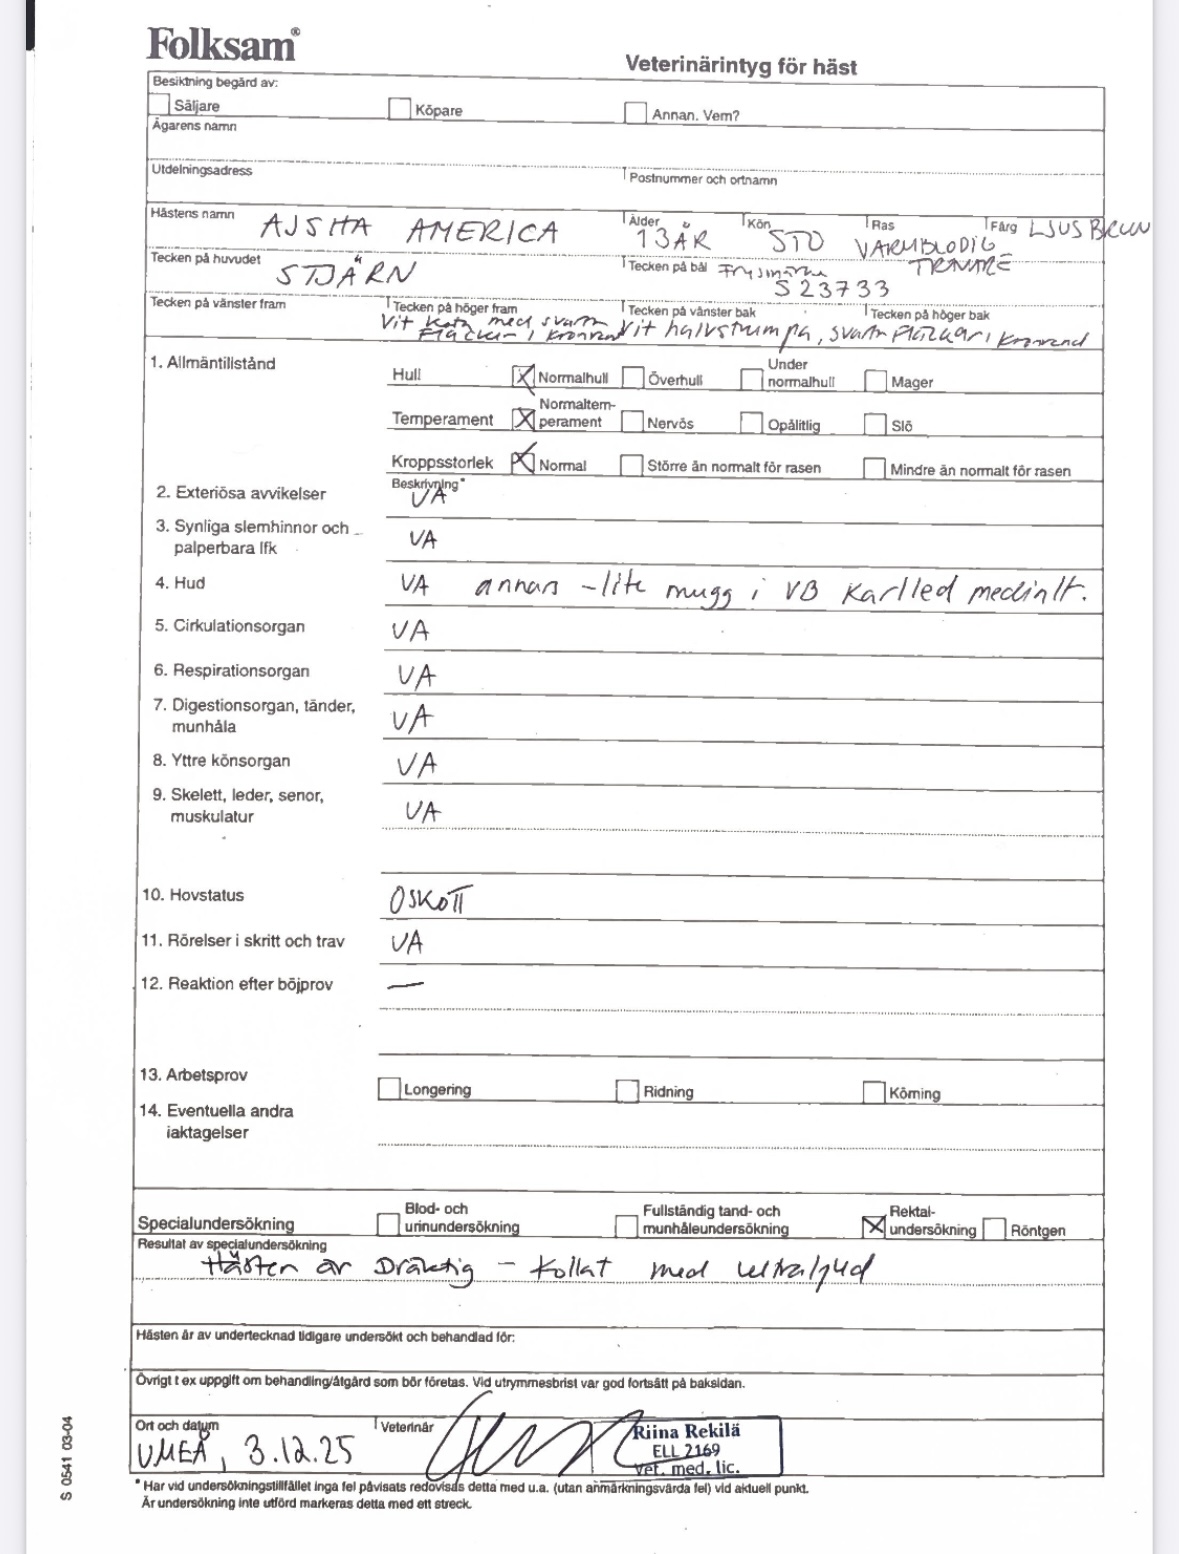 Folksam®
Veterinärintyg för häst
Besiktning begärd av:
Säljare Köpare Annan. Vem?
Ägarens namn
Utdelningsadress Postnummer och ortnamn
Hästens namn AJSHA AMERICA Ålder 13 ÅR Kön STO Ras VARMBLODIG TRAVARE Färg LJUS BRUN
Tecken på huvudet STJÄRN Tecken på bål Frysmärke S 23733
Tecken på vänster fram Tecken på höger fram Vit kota med svarta fläckar i kronrand Tecken på vänster bak Tecken på höger bak
Vit halvstrumpa, svarta fläckar i kronrand
1. Allmäntillstånd Hull Normalhull Överhull Under normalhull Mager
Temperament Normaltemperament Nervös Opålitlig Slö
Kroppsstorlek Normal Större än normalt för rasen Mindre än normalt för rasen
2. Exteriösa avvikelser Beskrivning* UA
3. Synliga slemhinnor och palperbara lfk UA
4. Hud UA annars - lite mugg i VB Karlled medialt.
5. Cirkulationsorgan UA
6. Respirationsorgan UA
7. Digestionsorgan, tänder, munhåla UA
8. Yttre könsorgan UA
9. Skelett, leder, senor, muskulatur UA
10. Hovstatus OSKOTT
11. Rörelser i skritt och trav UA
12. Reaktion efter böjprov —
13. Arbetsprov Longering Ridning Körning
14. Eventuella andra iaktagelser
Specialundersökning Blod- och urinundersökning Fullständig tand- och munhåleundersökning Rektalundersökning Röntgen
Resultat av specialundersökning
Hästen är Dräktig - Kollat med ultraljud
Hästen är av undertecknad tidigare undersökt och behandlad för:
Övrigt t ex uppgift om behandling/åtgärd som bör företas. Vid utrymmesbrist var god fortsätt på baksidan.
Ort och datum UMEÅ, 3.12.25 Veterinär
Riina Rekilä
ELL 2169
Vet. med. lic.
* Har vid undersökningstillfället inga fel påvisats redovisas detta med u.a. (utan anmärkningsvärda fel) vid aktuell punkt.
Är undersökning inte utförd markeras detta med ett streck.
S 0541 03-04